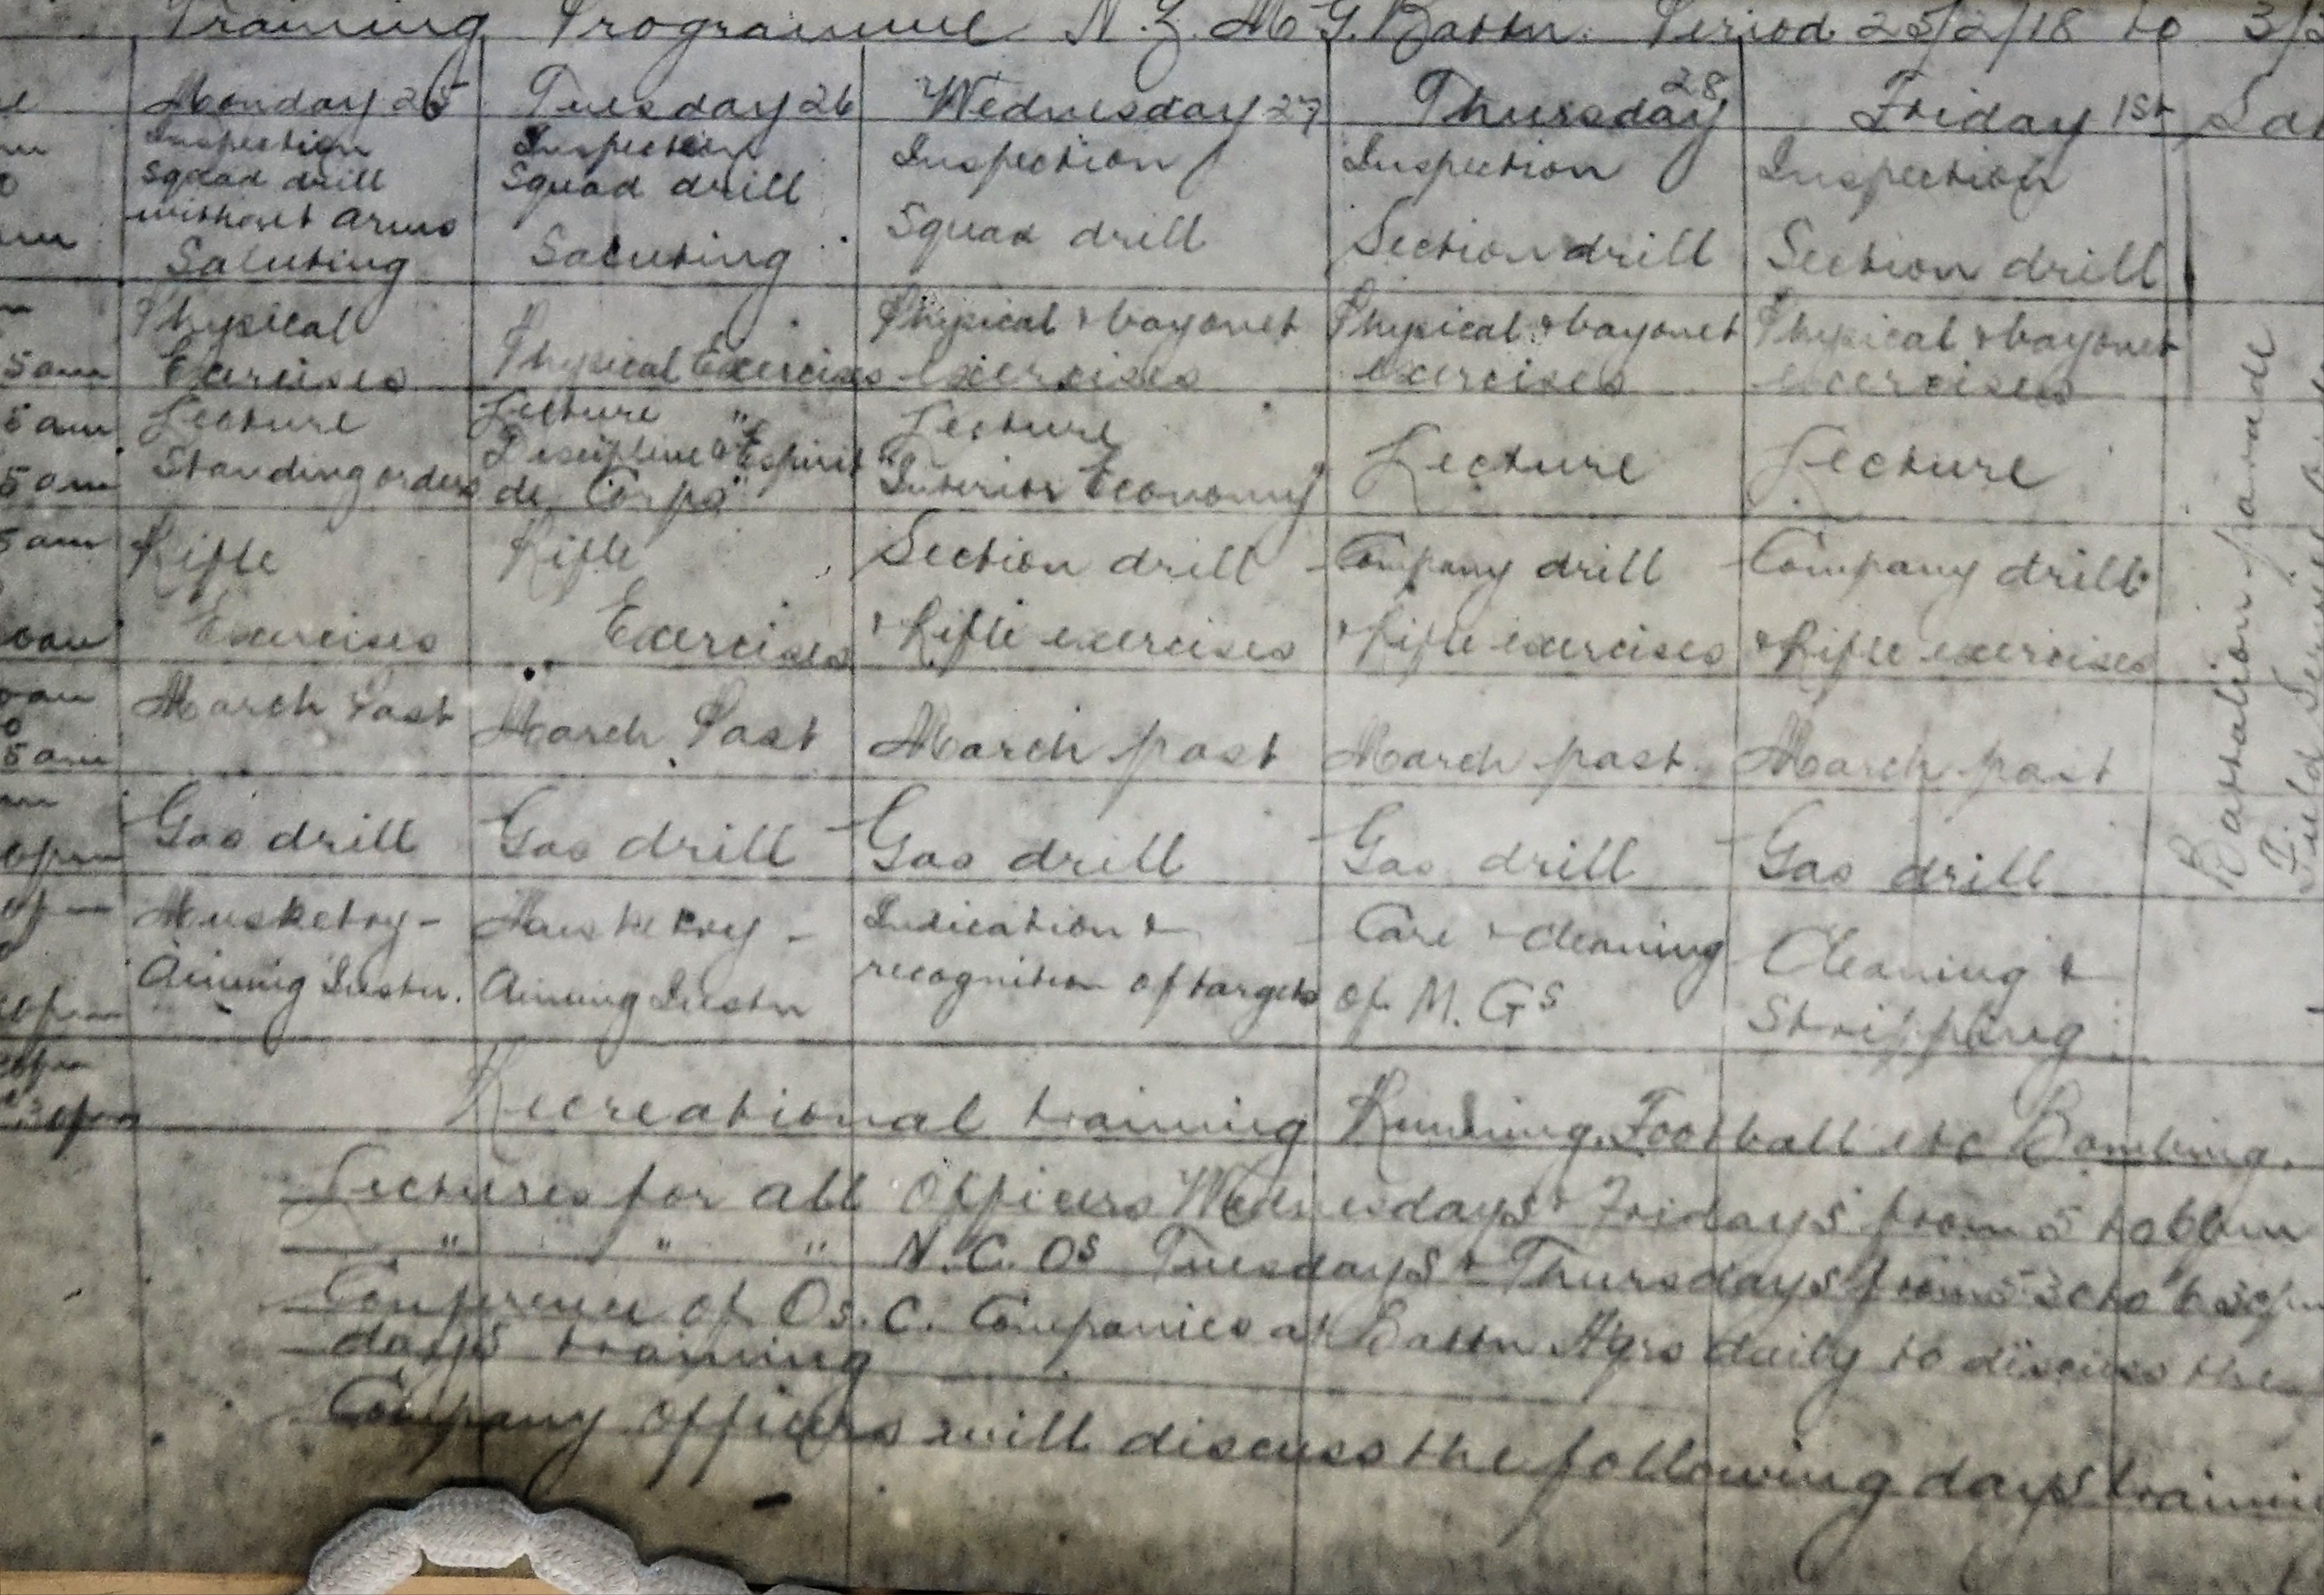 Training Programme N.Z. M.G. Battn. Period 25/2/18 to 3/
Monday 25 Tuesday 26 Wednesday 27 Thursday 28 Friday 1st
Inspection Inspection Inspection Inspection Inspection
Squad drill Squad drill Squad drill Section drill Section drill
without arms
Saluting Saluting
Physical Physical Exercises Physical & bayonet Physical & bayonet Physical & bayonet
5am Exercises exercises exercises exercises
5am Lecture Lecture Lecture Lecture Lecture
5am Standing orders Discipline & "Espirit Interior Economy
de Corps"
5am Rifle Rifle Section drill Company drill Company drill
Exercises Exercises & Rifle exercises & Rifle exercises & Rifle exercises
March Past March Past March past March past March past
5am
Gas drill Gas drill Gas drill Gas drill Gas drill
Musketry - Musketry - Indication & Care & cleaning Cleaning &
Aiming Instn. Aiming Instn recognition of targets of M. Gs Stripping
Battalion parade
Field
Recreational training Running, Football etc Bombing.
Lectures for all Officers Wednesdays & Fridays from 5 to 6pm
" " " N.C.Os Tuesdays & Thursdays from 5 30 to 6 30pm
Conference of Os.C. Companies at Battn Hqrs daily to discuss the
days training
Company officers will discuss the following days